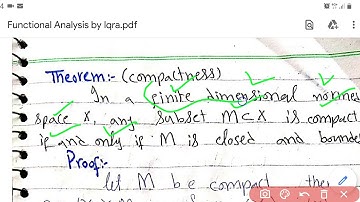 Functional Analysis by Iqra.pdf
Theorem:- (compactness)
In a finite dimensional normed
space X, any subset M⊂X is compact
if and only if M is closed and bounde
Proof:-
let M be compact the